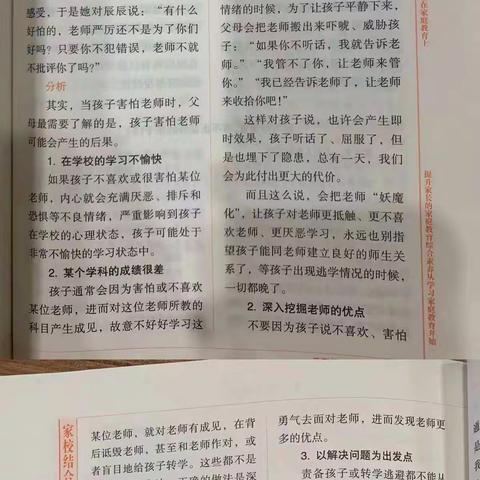 感受，于是她对辰辰说：“有什么
好怕的，老师严厉还不是为了你们
好吗？只要你不犯错误，老师不就
不批评你了吗？”
分析
其实，当孩子害怕老师时，父
母最需要了解的是，孩子害怕老师
可能会产生的后果。
1. 在学校的学习不愉快
如果孩子不喜欢或很害怕某位
老师，内心就会充满厌恶、排斥和
恐惧等不良情绪，严重影响到孩子
在学校的心理状态，孩子可能处于
非常不愉快的学习状态中。
2. 某个学科的成绩很差
孩子通常会因为害怕或不喜欢
某位老师，进而对这位老师所教的
科目产生成见，故意不好好学习这
情绪的时候，为了让孩子平静下来，
父母会把老师搬出来吓唬、威胁孩
子：“如果你不听话，我就告诉老
师。”“我管不了你，让老师来管
你。”“我已经告诉老师了，让老师
来收拾你吧！”
这样对孩子说，也许会产生即
时效果，孩子听话了、屈服了，但
是也埋下了隐患，总有一天，我们
会为此付出更大的代价。
而且这么说，会把老师“妖魔
化”，让孩子对老师更抵触、更不喜
欢老师、更厌恶学习，永远也别指
望孩子能同老师建立良好的师生关
系了，等孩子出现逃学情况的时候，
一切都晚了。
2. 深入挖掘老师的优点
不要因为孩子说不喜欢、害怕
在家庭教育上
提升家长的家庭教育综合素养从学习家庭教育开始
家校结合
某位老师，就对老师有成见，在背
后诋毁老师，甚至和老师作对，或
者盲目地给孩子转学。这些都不是
正确的做法是深
勇气去面对老师，进而发现老师更
多的优点。
3. 以解决问题为出发点
责备孩子或转学逃避都不能从